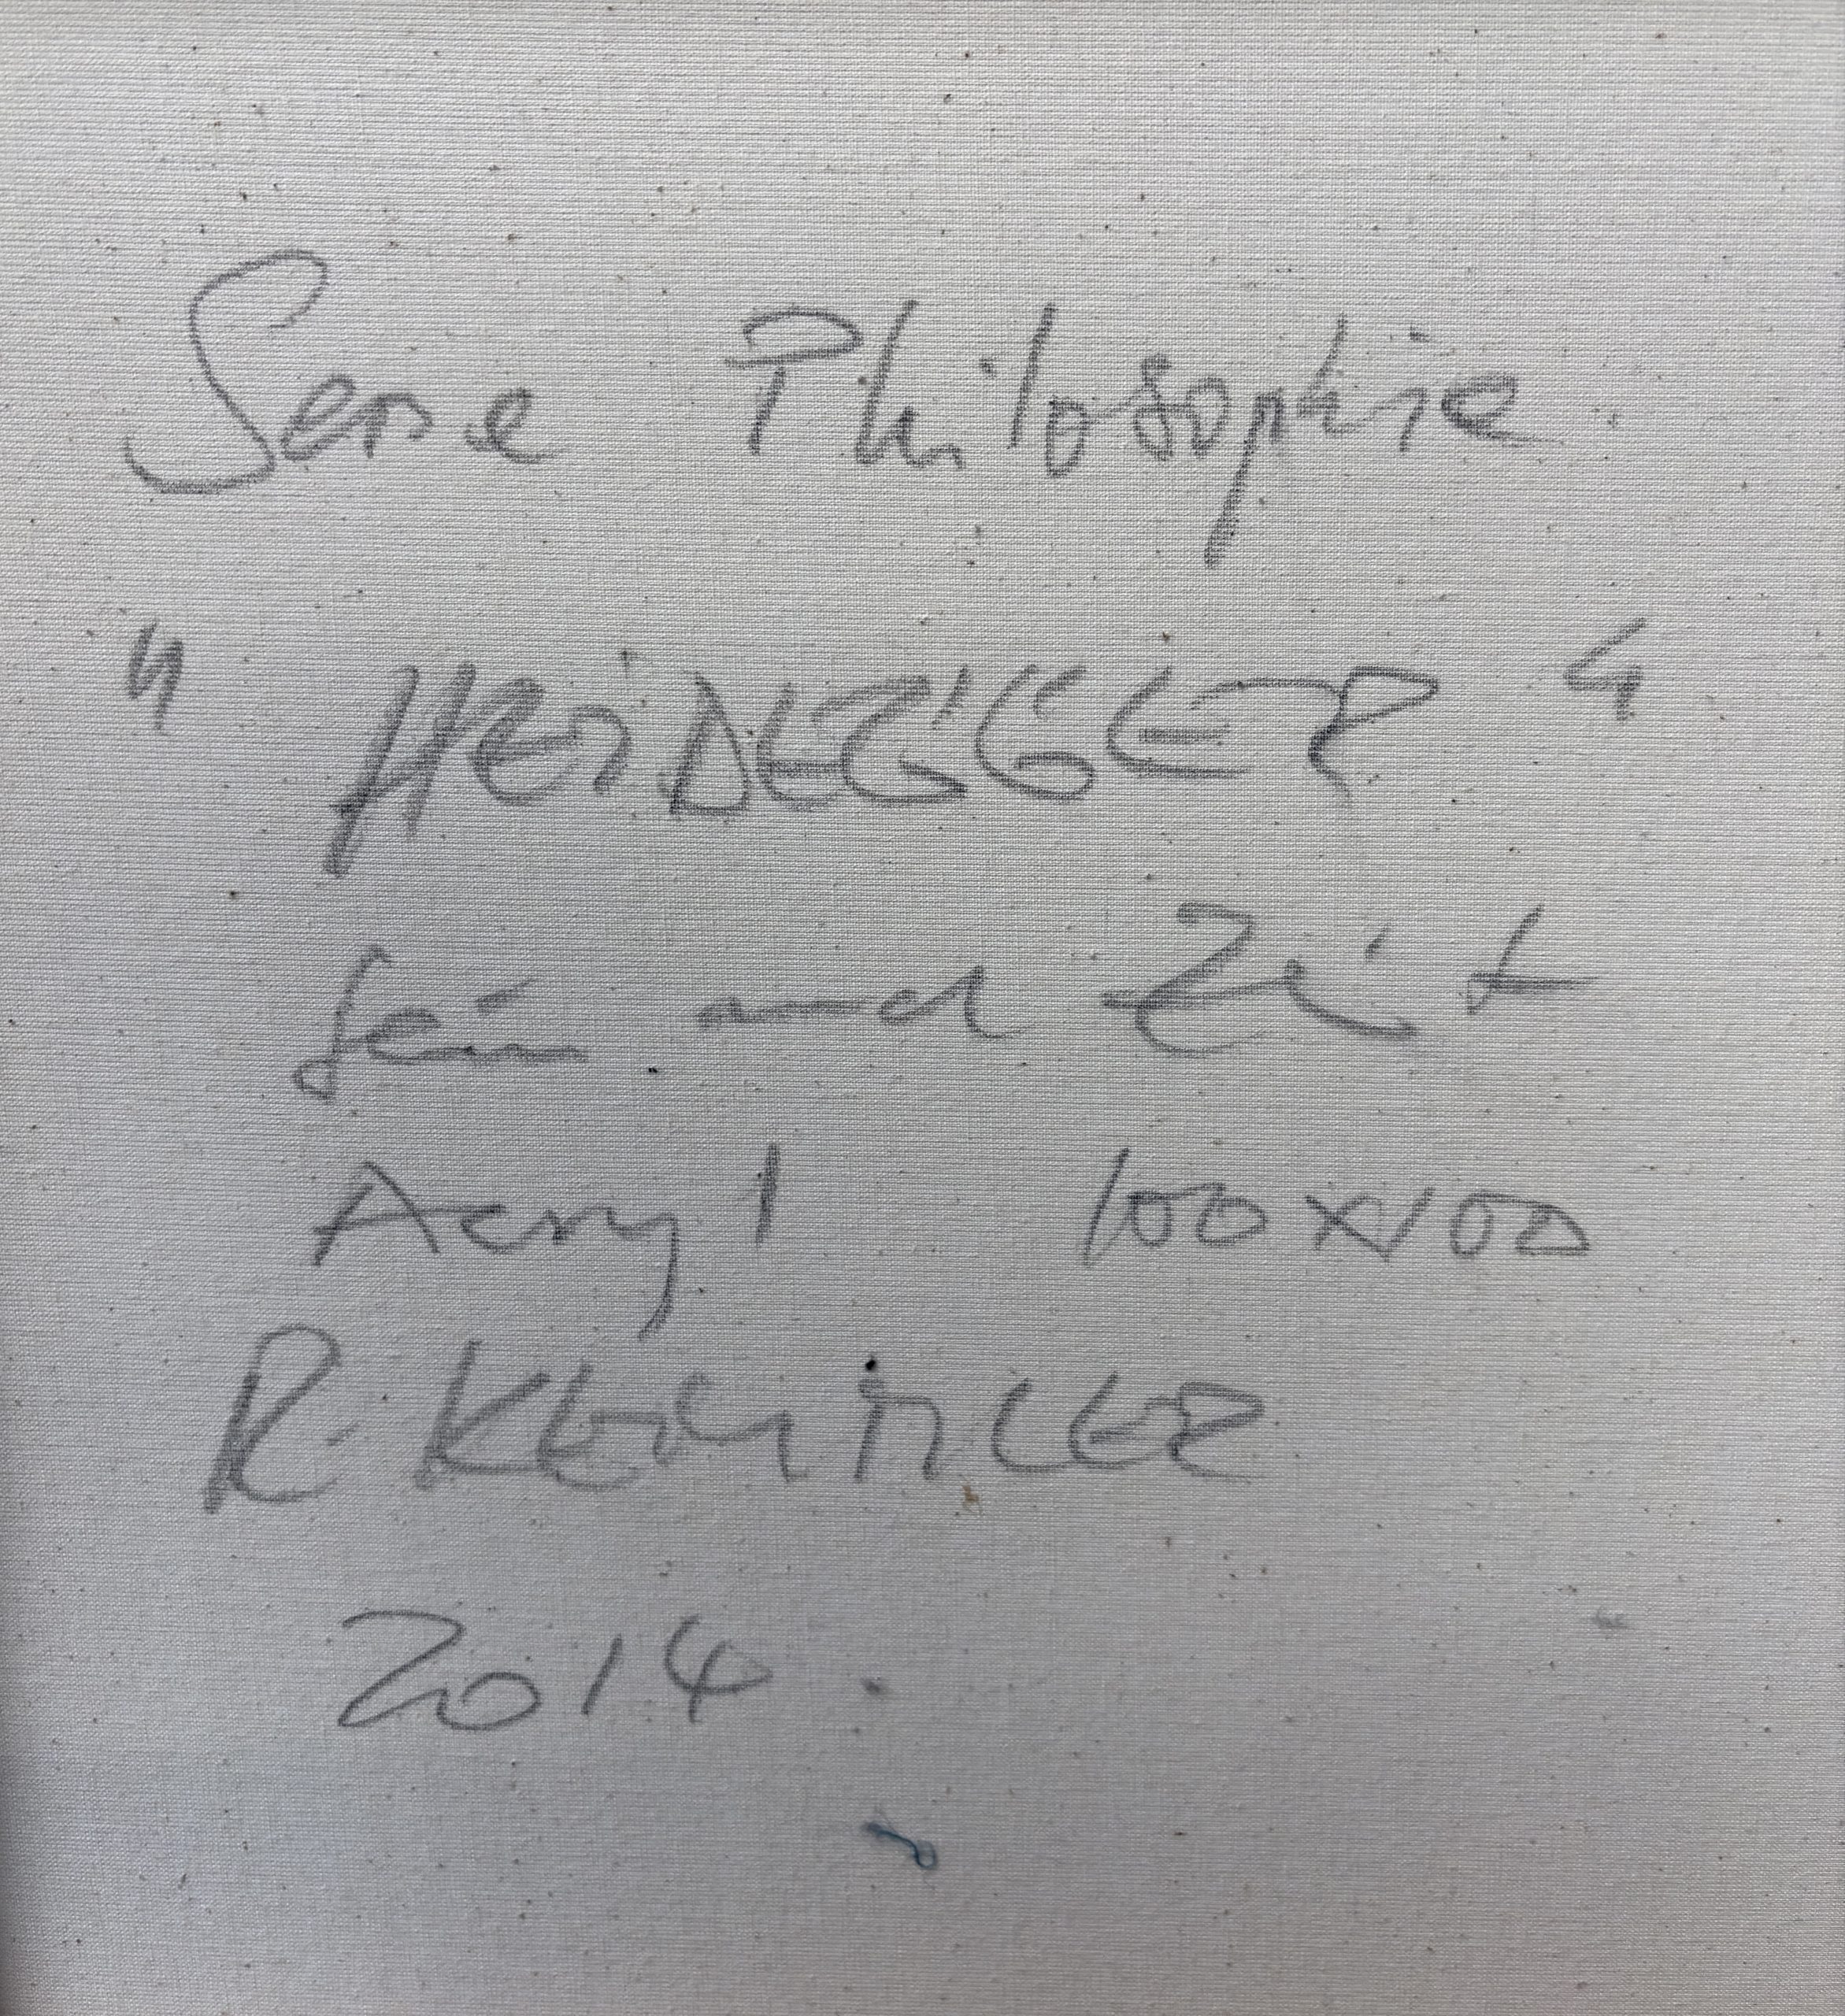 Serie Philosophie
"HEIDEGGER"
Sein und Zeit
Acryl 100x100
R.
2014